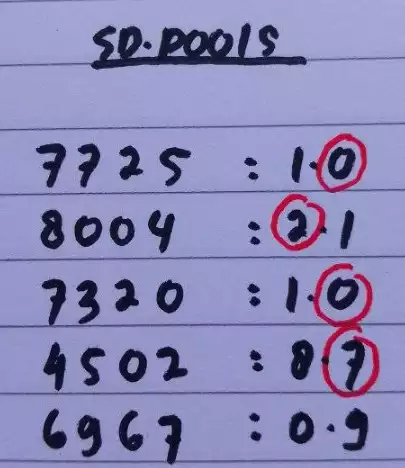 SD.POOLS
7725 : 1.0
8004 : 2.1
7320 : 1.0
4502 : 8.7
6967 : 0.9